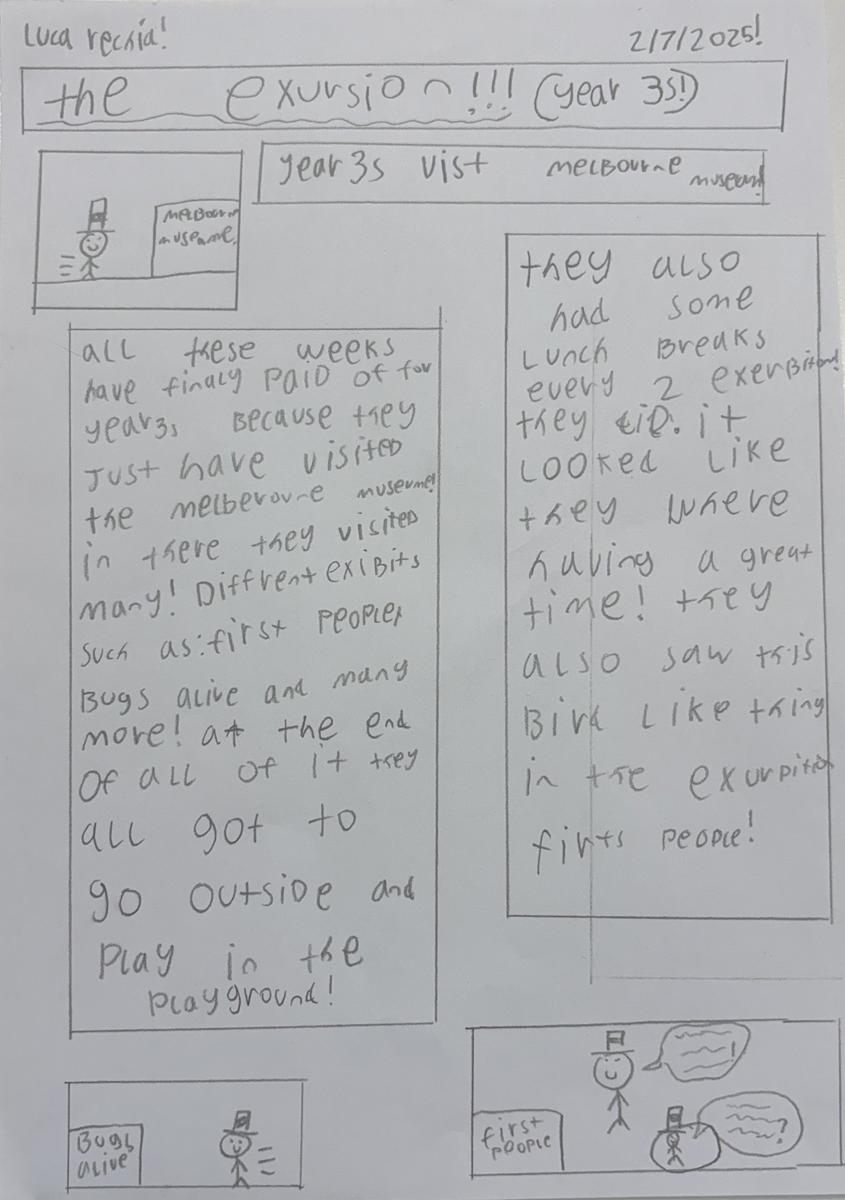 Luca rechia!
2/7/2025!
the exursion!!! (year 3s!)
year3s vist melbourne museum!
melbourne
museame.
all these weeks
have finaly paid of for
year3s because they
just have visited
the melberoune museume!
in there they visited
many! Diffrent exibits
such as: first people,
Bugs alive and many
more! at the end
of all of it they
all got to
go outside and
play in the
playground!
they also
had some
lunch breaks
every 2 exerbitions!
they did. it
looked like
they where
having a great
time! they
also saw this
Bird like thing
in the exurpition
firts people!
Bugs
alive
first
people
!
?